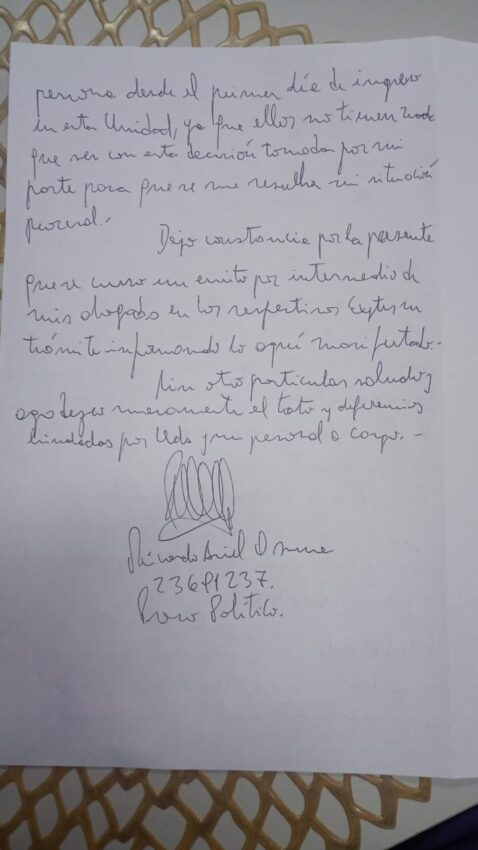 persona desde el primer día de ingreso
en esta Unidad, ya que ellos no tienen nada
que ver con esta decisión tomada por mi
parte para que se me resuelva mi situación
procesal.-
Dejo constancia por la presente
que se curso un escrito por intermedio de
mis abogados en los respectivos Exptes en
trámite informando lo aquí manifestado.-
Sin otro particular saludo y
agradezco nuevamente el trato y deferencias
brindadas por Uds y su personal a cargo.-
Ricardo Ariel
23691237.
Preso Político.